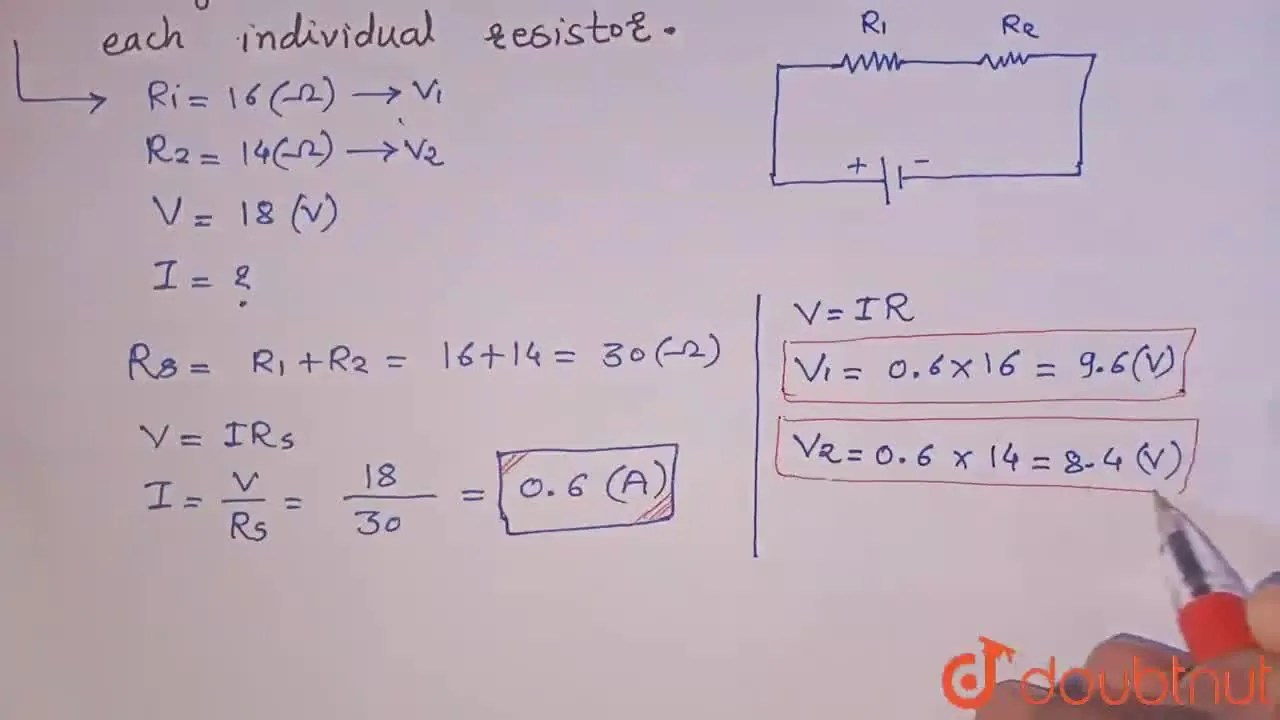 each individual resistor.
R1 = 16 (Ω) → V1
R2 = 14 (Ω) → V2
V = 18 (V)
I = ?
Rs = R1 + R2 = 16 + 14 = 30 (Ω)
V = IRs
I = V/Rs = 18/30 = 0.6 (A)
R1 R2
+ -
V = IR
V1 = 0.6 × 16 = 9.6 (V)
V2 = 0.6 × 14 = 8.4 (V)
doubtnut